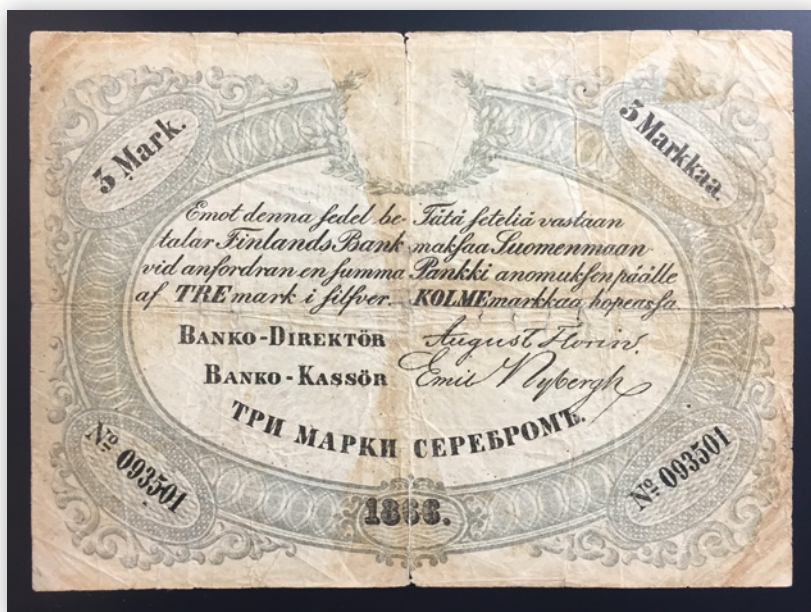 3 Mark.
3 Markkaa.
Emot denna sedel be-
talar Finlands Bank
vid anfordran en summa
af TRE mark i silfver.
Tätä seteliä vastaan
maksaa Suomenmaan
Pankki anomuksen päälle
KOLME markkaa hopeassa.
BANKO-DIREKTÖR August Florin.
BANKO-KASSÖR Emil Nybergh
ТРИ МАРКИ СЕРЕБРОМЪ.
№ 093501
№ 093501
1866.